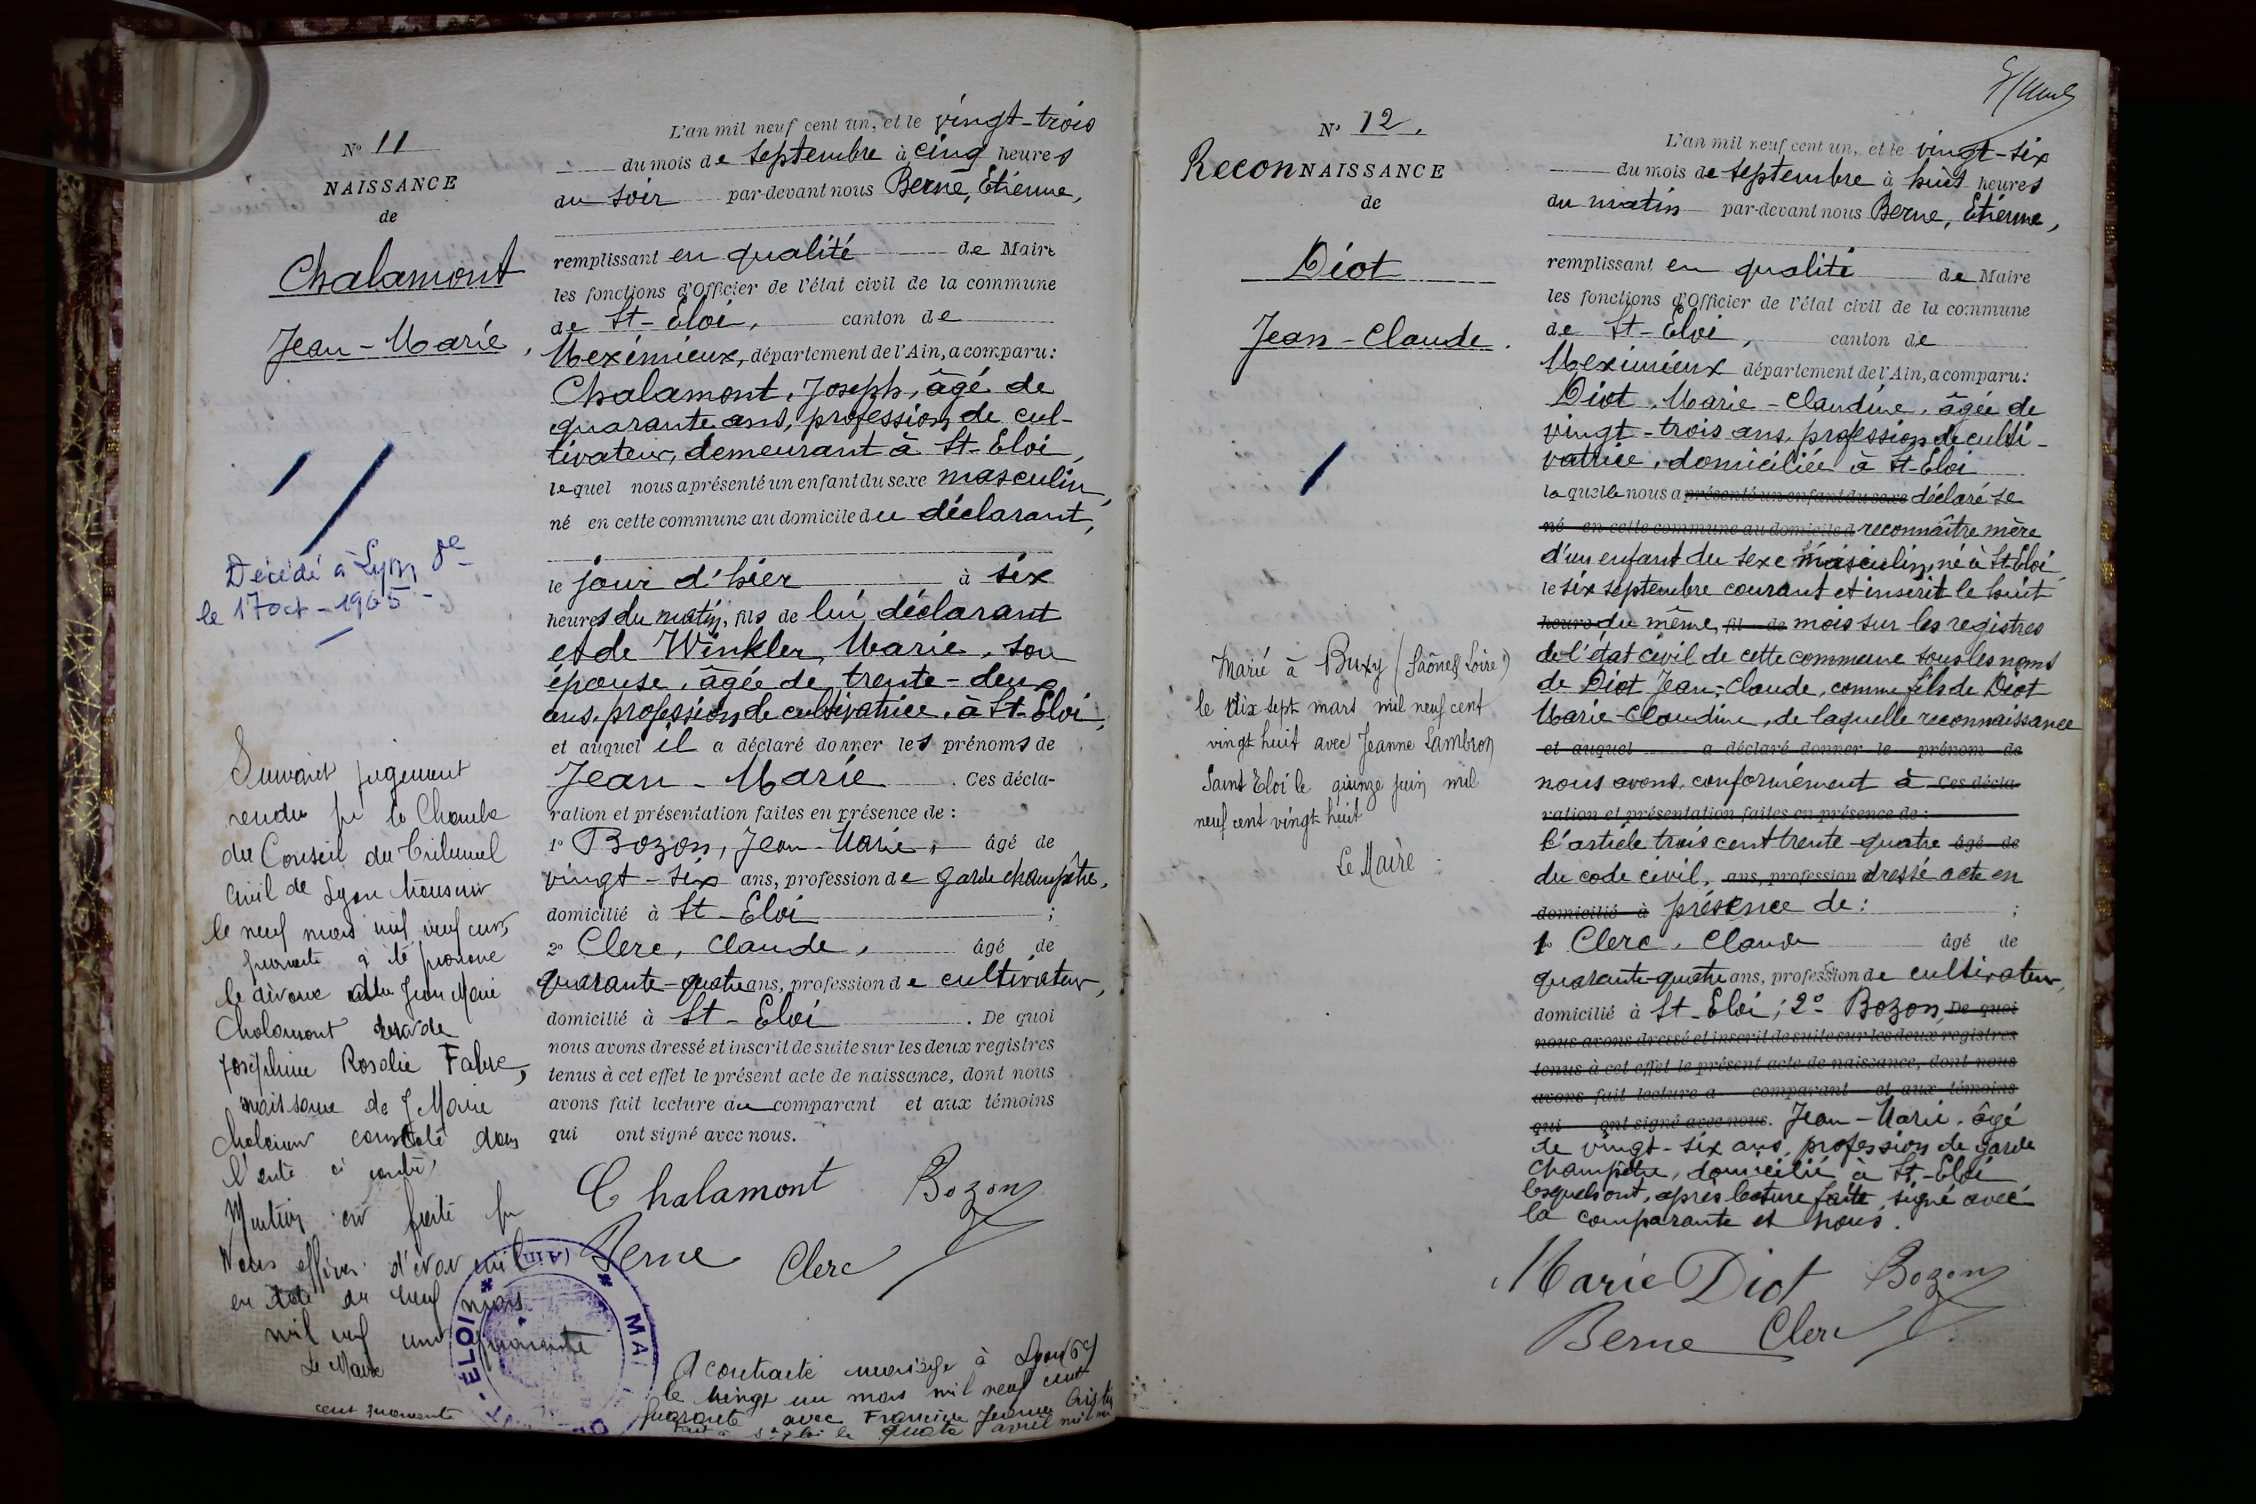 N° 11
NAISSANCE
de
Chalamont
Jean-Marie,
Décédé à Lyon 8e
le 17 oct - 1965 -
Suivant jugement
rendu par la Chambre
du Conseil du Tribunal
civil de Lyon
le neuf mars mil neuf cent
quarante a été prononcé
le divorce entre Jean Marie
Chalamont
Joséphine Rosalie Fabre,
naissance de J. Marie
dans
l'acte ci contre
Mention en faite par
Nous officier d'état civil
en date du neuf mars
mil neuf cent quarante
Le Maire
cent quarante
L'an mil neuf cent un, et le vingt-trois
du mois de septembre à cinq heures
du soir par-devant nous Berne, Etienne,
remplissant en qualité de Maire
les fonctions d'Officier de l'état civil de la commune
de St-Eloi, canton de
Meximieux, département de l'Ain, a comparu:
Chalamont, Joseph, âgé de
quarante ans, profession de cul-
tivateur, demeurant à St-Eloi,
lequel nous a présenté un enfant du sexe masculin,
né en cette commune au domicile du déclarant,
le jour d'hier à six
heures du matin, fils de lui déclarant
et de Winkler, Marie, son
épouse, âgée de trente-deux
ans, profession de cultivatrice, à St-Eloi,
et auquel il a déclaré donner les prénoms de
Jean-Marie. Ces décla-
ration et présentation faites en présence de :
1° Bozon, Jean-Marie, âgé de
vingt-six ans, profession de garde champêtre,
domicilié à St-Eloi ;
2° Clerc, Claude, âgé de
quarante-quatre ans, profession de cultivateur,
domicilié à St-Eloi. De quoi
nous avons dressé et inscrit de suite sur les deux registres
tenus à cet effet le présent acte de naissance, dont nous
avons fait lecture au comparant et aux témoins
qui ont signé avec nous.
Chalamont Bozon
Berne Clerc
ELOI * (Ain) * MAI
A contracté mariage à Lyon (6e)
le vingt un mars mil neuf cent
quarante avec Francine Jeanne
Fait à St Eloi le quatre avril mil
N° 12.
ReconNAISSANCE
de
Diot
Jean-Claude.
Marié à Buxy (Saône & Loire)
le dix sept mars mil neuf cent
vingt huit avec Jeanne Lambron
Saint Eloi le quinze juin mil
neuf cent vingt huit
Le Maire :
L'an mil neuf cent un, et le vingt-six
du mois de septembre à huit heures
du matin par-devant nous Berne, Etienne,
remplissant en qualité de Maire
les fonctions d'Officier de l'état civil de la commune
de St-Eloi, canton de
Meximieux département de l'Ain, a comparu:
Diot, Marie-Claudine, âgée de
vingt-trois ans, profession de culti-
vatrice, domiciliée à St-Eloi
laquelle nous a présenté un enfant du sexe déclaré se
né en cette commune au domicile d reconnaître mère
d'un enfant du sexe masculin, né à St-Eloi
le six septembre courant et inscrit le huit
heure du même, fil de mois sur les registres
de l'état civil de cette commune sous les noms
de Diot Jean-Claude, comme fils de Diot
Marie-Claudine, de laquelle reconnaissance
et auquel a déclaré donner le prénom de
nous avons, conformément à Ces décla-
ration et présentation faites en présence de :
l'article trois cent trente-quatre âgé de
du code civil, ans, profession dressé acte en
domicilié à présence de : ;
1° Clerc, Claude âgé de
quarante-quatre ans, profession de cultivateur,
domicilié à St-Eloi ; 2° Bozon, De quoi
nous avons dressé et inscrit de suite sur les deux registres
tenus à cet effet le présent acte de naissance, dont nous
avons fait lecture a comparant et aux témoins
qui ont signé avec nous. Jean-Marie, âgé
de vingt-six ans, profession de garde
champêtre, domicilié à St-Eloi
lesquels ont, après lecture faite, signé avec
la comparante et nous.
Marie Diot Bozon
Berne Clerc